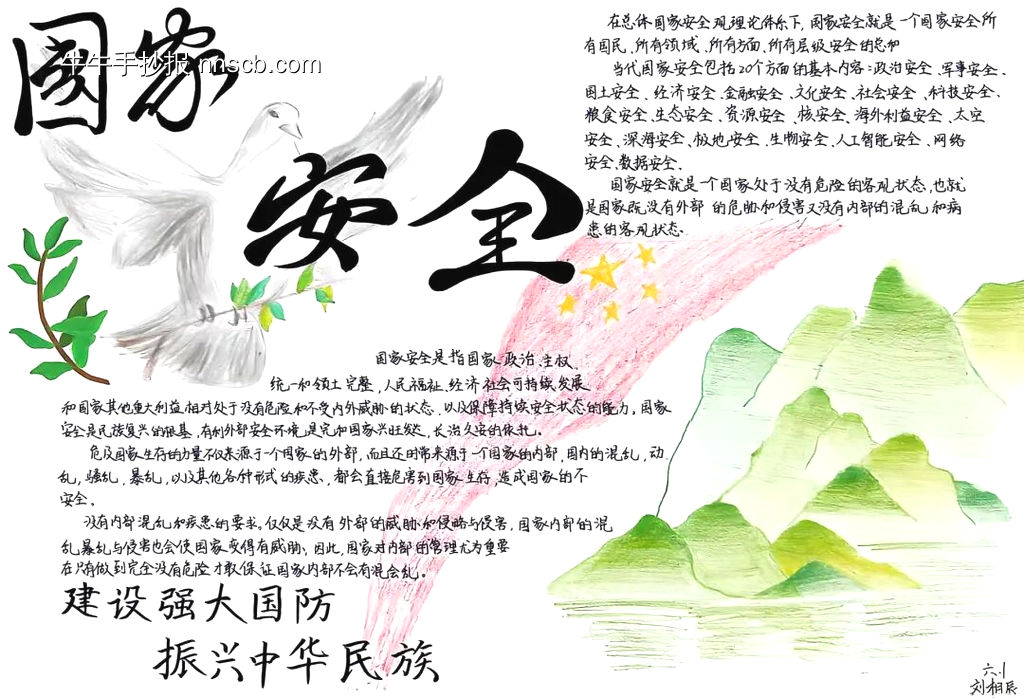 國家
牛牛手抄报 nnscb.com
安全
在总体国家安全观理论体系下,国家安全就是一个国家安全所
有国民、所有领域、所有方面、所有层级安全的总和
当代国家安全包括20个方面的基本内容:政治安全、军事安全、
国土安全、经济安全、金融安全、文化安全、社会安全、科技安全、
粮食安全、生态安全、资源安全、核安全、海外利益安全、太空
安全、深海安全、极地安全、生物安全、人工智能安全、网络
安全、数据安全、
国家安全就是一个国家处于没有危险的客观状态,也就
是国家既没有外部的危胁和侵害又没有内部的混乱和病
患的客观状态.
国家安全是指国家政治、主权、
统一和领土完整,人民福祉、经济社会可持续发展
和国家其他重大利益相对处于没有危险和不受内外威胁的状态.以及保障持续安全状态的能力,国家
安全是民族复兴的根基,有利外部安全环境是完和国家兴旺发,长治久安的依托。
危及国家生存的力量不仅来源于一个国家的外部,而且还时常来源于一个国家的内部,国内的混乱,动
乱,骚乱,暴乱,以及其他各种形式的疾患,都会直接危害到国家生存,造成国家的不
安全.
没有内部混乱和疾患的要求。仅仅是没有外部的威胁和侵略与侵害,国家内部的混
乱暴乱与侵害也会使国家变得有威胁,因此,国家对内部的管理尤为重要
在只有做到完全没有危险才敢保证国家内部不会有混会乱。
建设强大国防
振兴中华民族
六.1
刘相辰